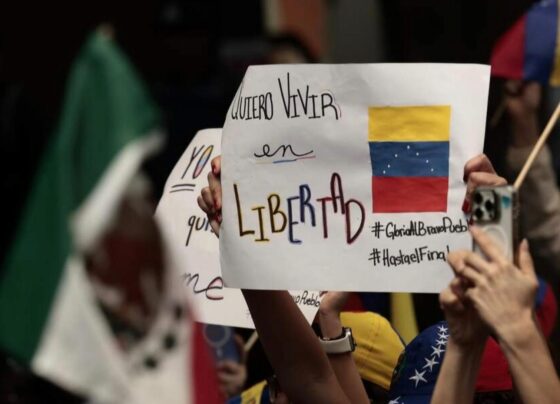 QUIERO VIVIR
en
LIBERTAD
#GloriaAlBravoPueblo
#HastaelFinal
YO
qui
me
Pueblo